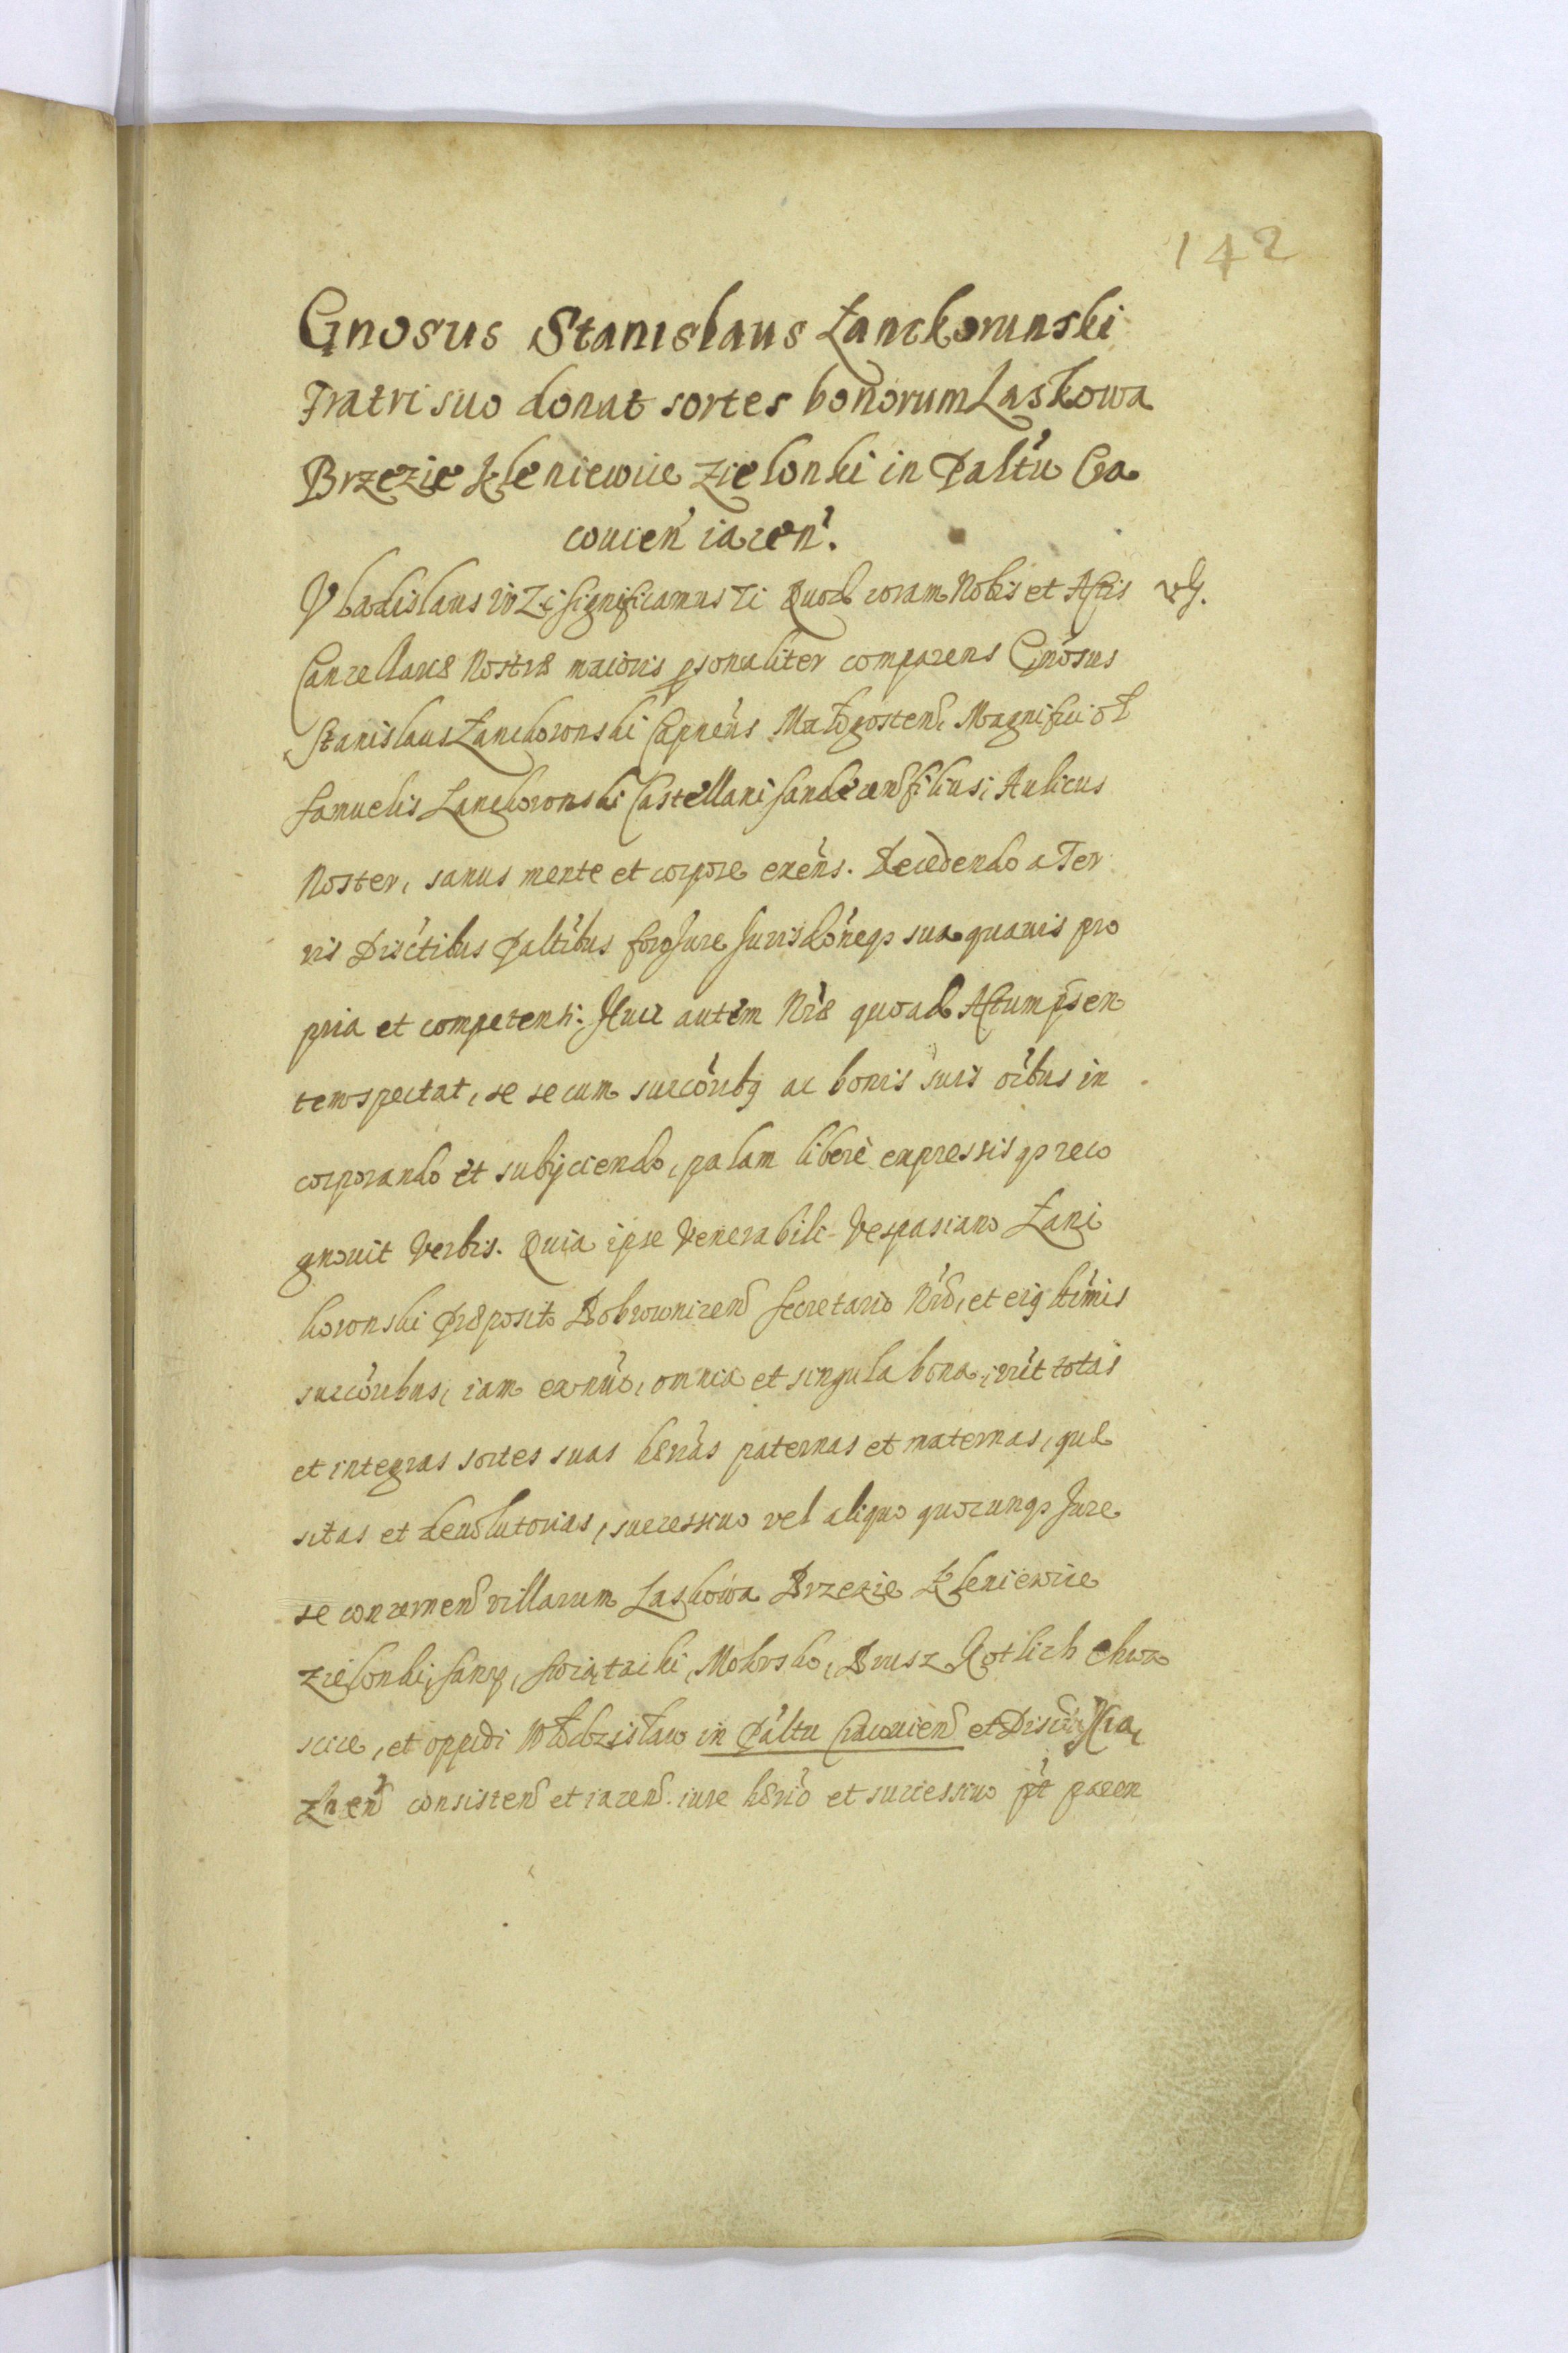 142
Gnosus Stanislaus Łanckorunski
Fratri suo donat sortes bonorum Laskowa
Brzezie Kleniewice Zielonki in Paltũ Cra
couien̉ iacen̉.
Vladislaus IV Z. Significamus Zi Quod coram Nobis et Actis
Cancellariæ Nostræ maioris psonaliter comparens Gnosus
Stanislaus Łanckoronski Capneus Małogosten. Magnifici ol
Samuelis Lanckoronski Castellani filius, Aulicus
Noster, sanus mente et corpore exens. Recedendo a Ter
ris Disctibus Paltibus foro Jure Jurisdoneqз sua quavis pro
pria et competenti. Huic autem Nræ quoad Actum pñsen
tem spectat, se se cum succoribз ac bonis suis oibus in
corporando et subijciendo, palam libere expressisqз reco
gnouit Verbis. Quia ipse Venerabili Vespasiano Łanc
koronski Præposito Bobrownicen Secretario Nrõ, et eiз ltimis
succoribus, iam ex nũc, omnia et singula bona, vut totas
et integras sortes suas hærias paternas et maternas, quæ
sitas et deuolutorias, successiuo vel aliquo quocunqз Jure
se concernen villarum Laskowa Brzezie Kleniewice
Zielonki, Sancy, Swiątniki, Mokrsko, Brusz Gotlich chwa
scice, et oppidi Włodzisław in Paltu Cracouien et Disctu Xia
znen consisten et iacen. iure hærio et successiuo pt paren